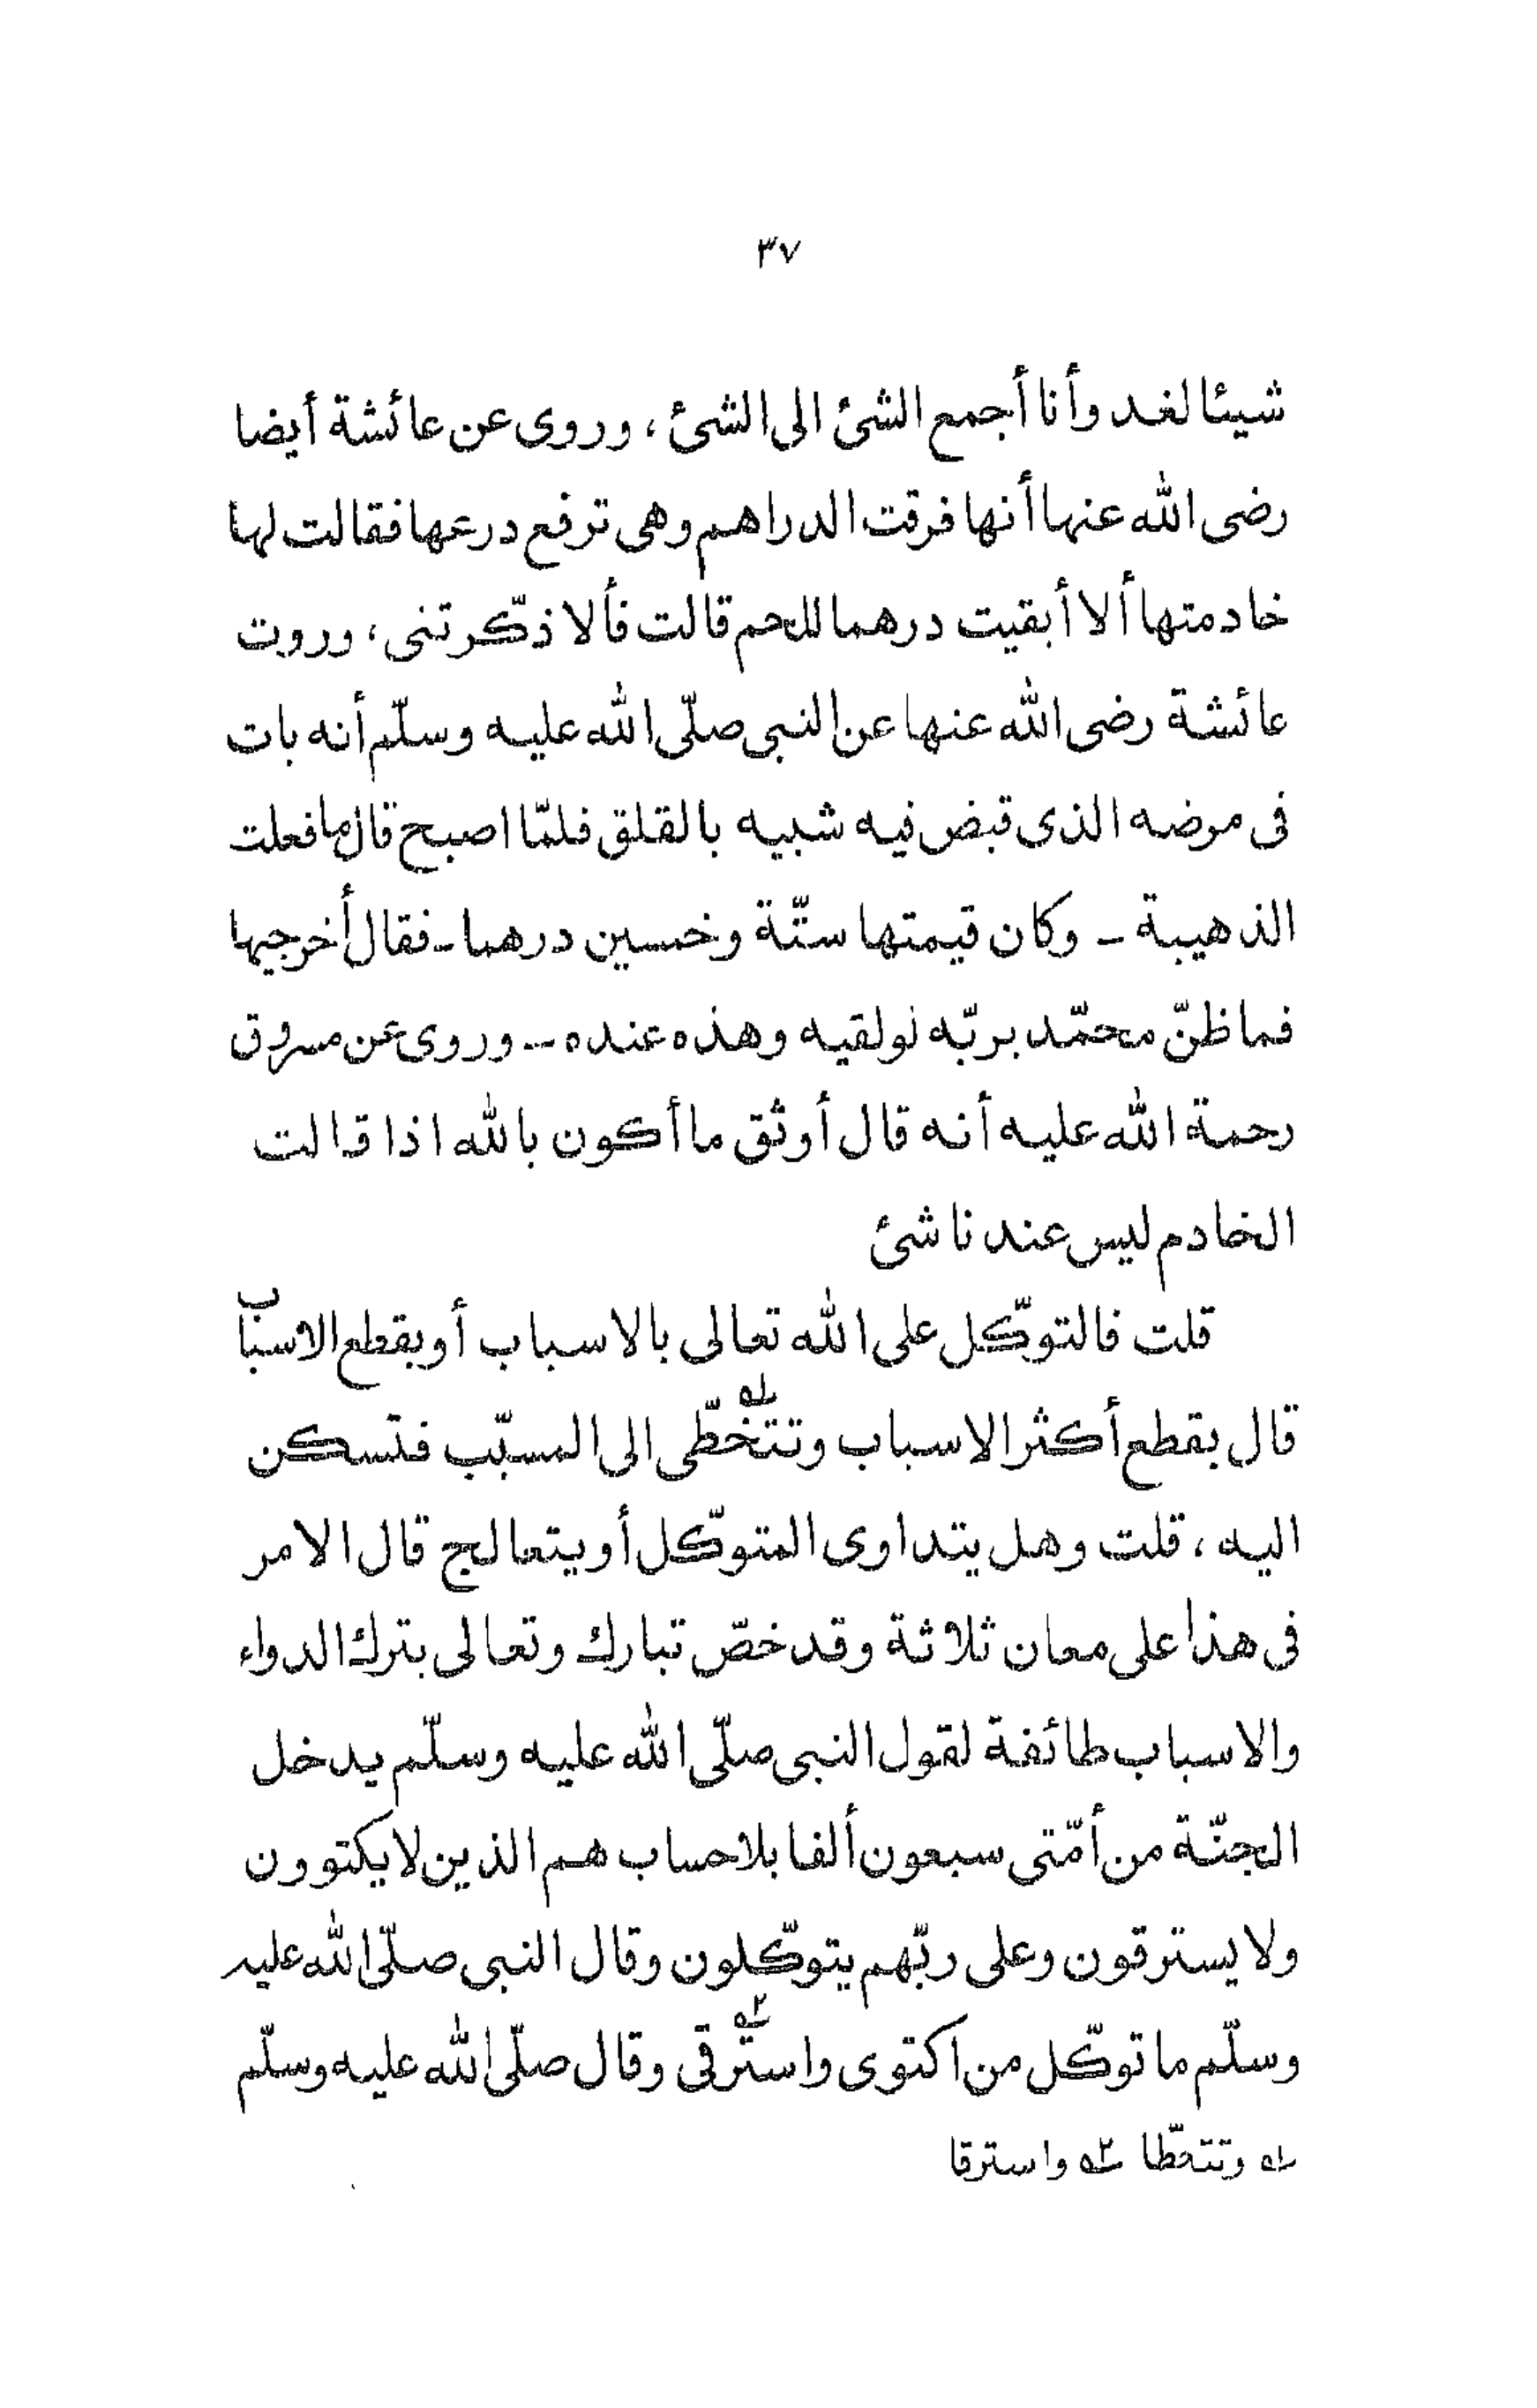 ٣٧
شيئا لغد وأنا أجمع الشئ الى الشئ، وروى عن عائشة أيضا
رضى الله عنها أنها فرقت الدراهم وهى ترفع درعها فقالت لها
خادمتها ألا أبقيت درهما للحم قالت فألا ذكّرتنى، وروت
عائشة رضى الله عنها عن النبى صلّى الله عليه وسلّم أنه بات
فى مرضه الذى قبض فيه شبيه بالقلق فلمّا اصبح قال ما فعلت
الذهيبة ـ وكان قيمتها ستّة وخمسين درهما ـ فقال أخرجيها
فما ظنّ محمّد بربّه لو لقيه وهذه عنده ـ وروى عن مسروق
رحمة الله عليه أنه قال أوثق ما أكون بالله اذا قالت
الخادم ليس عندنا شئ
قلت فالتوكّل على الله تعالى بالاسباب أو بقطع الاسباب
قال بقطع أكثر الاسباب وتتخطّى ١ه الى المسبّب فتسكن
اليه، قلت وهل يتداوى المتوكّل أو يتعالج قال الامر
فى هذا على معان ثلاثة وقد خصّ تبارك وتعالى بترك الدواء
والاسباب طائفة لقول النبى صلّى الله عليه وسلّم يدخل
الجنّة من أمّتى سبعون ألفا بلا حساب هم الذين لا يكتوون
ولا يسترقون وعلى ربّهم يتوكّلون وقال النبى صلّى الله عليه
وسلّم ما توكّل من اكتوى واسترقى ٢ه وقال صلّى الله عليه وسلّم
١ه وتتخطّا ٢ه واسترقا